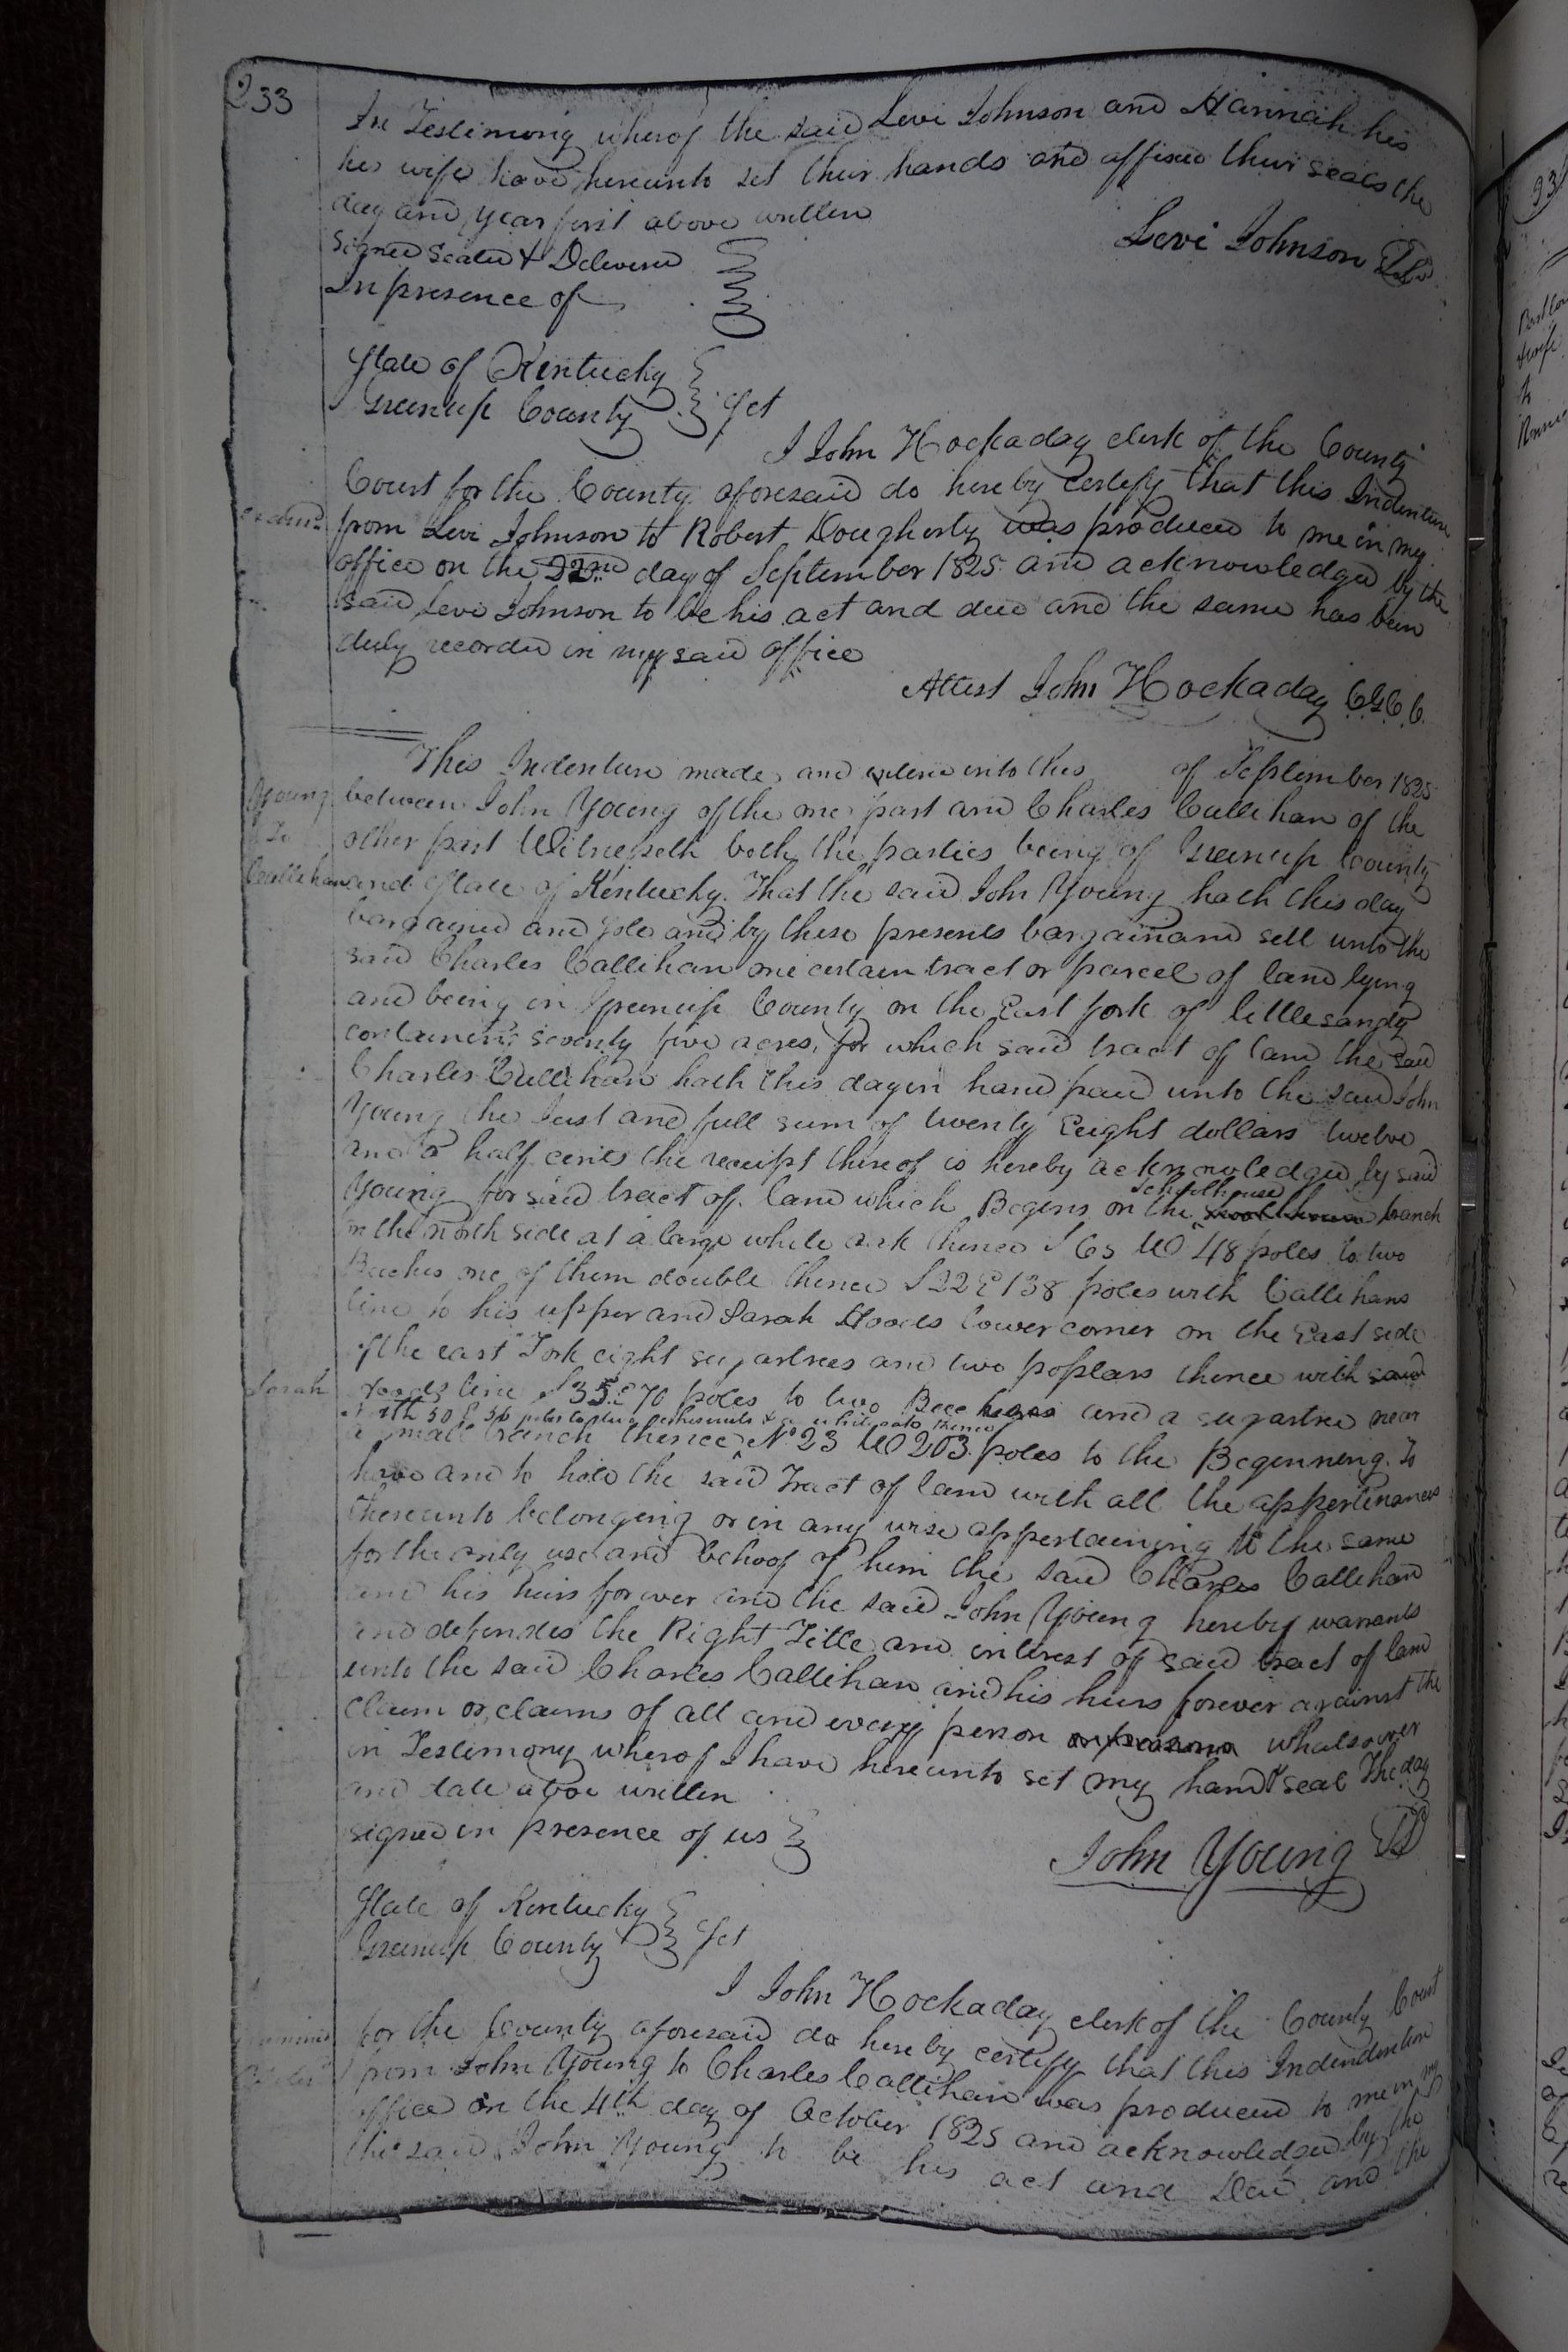 233
In Testimony wherof the said Levi Johnson and Hannah his
his wife have hereunto set their hands and affixed their seals the
day and year first above written
Signed Sealed & Delivered
In presence of
Levi Johnson
State of Kentucky
Greenup County Sct
I John Hockaday clerk of the County
Court for the County aforesaid do hereby certify that this Indenture
from Levi Johnson to Robert Dougherty was produced to me in my
office on the 22nd day of September 1825 and acknowledged by the
said Levi Johnson to be his act and deed and the same has been
duly recorded in my said office
Attest John Hockaday C G C C
This Indenture made and entered into this of September 1825
Young
To
Callihan
between John Young of the one part and Charles Callihan of the
other part Witnesseth both the parties being of Greenup County
and State of Kentucky. That the said John Young hath this day
bargained and sold and by these presents bargain and sell unto the
said Charles Callihan one certain tract or parcel of land lying
and being in Greenup County on the East fork of little sandy
containing seventy five acres, for which said tract of land the said
Charles Callihan hath this day in hand paid unto the said John
Young the Just and full sum of twenty Eight dollars twelve
and a half cents the receipt thereof is hereby acknowledged by said
Young for said tract of land which Begins on the Schoolhouse branch
on the north side at a large white oak thence S 65 W 48 poles to two
Buches one of them double thence S 22 E 138 poles with Callihans
line to his upper and Sarah Hoods lower corner on the East side
of the east Fork eight sugartrees and two poplars thence with said
Sarah
Hoods line S 35 E 70 poles to two Beeches and a sugartree near
North 50 E 36 poles to & a white oak thence
a small branch thence N 23 W 203 poles to the Beginning. To
have and to hold the said Tract of land with all the appertinances
thereunto belonging or in any wise appertaining to the same
for the only use and behoof of him the said Charles Callihan
and his heirs forever and the said John Young hereby warrants
and defendes the Right Title and interest of said tract of land
unto the said Charles Callihan and his heirs forever against the
claim or claims of all and every person or persons whatsoever
in Testimony wherof I have hereunto set my hand & seal The day
and date above written
signed in presence of us
John Young
State of Kentucky
Greenup County Sct
I John Hockaday clerk of the County Court
for the County aforesaid do hereby certify that this Indendenture
from John Young to Charles Callihan was produced to me in my
office on the 4th day of October 1825 and acknowledged by the
the said John Young to be his act and Deed and the